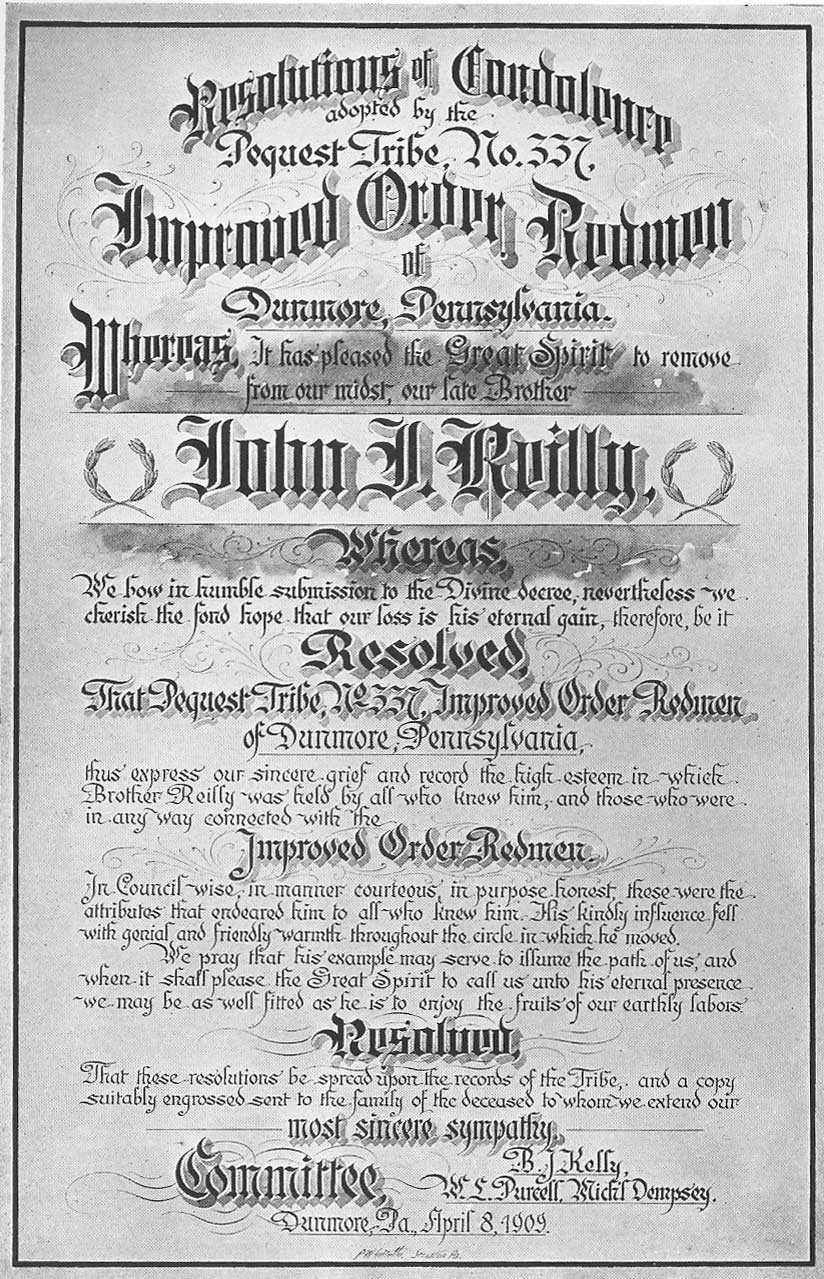 Resolutions of Condolence
adopted by the
Pequest Tribe, No. 337,
Improved Order, Redmen
of
Dunmore, Pennsylvania.
Whereas, It has pleased the Great Spirit to remove
from our midst, our late Brother
John J. Reilly,
Whereas,
We bow in humble submission to the Divine decree, nevertheless we
cherish the fond hope that our loss is his eternal gain, therefore, be it
Resolved,
That Pequest Tribe, No 337, Improved Order Redmen
of Dunmore, Pennsylvania,
thus express our sincere grief and record the high esteem in which
Brother Reilly was held by all who knew him, and those who were
in any way connected with the
Improved Order Redmen.
In Council wise, in manner courteous, in purpose honest, these were the
attributes that endeared him to all who knew him. His kindly influence fell
with genial and friendly warmth throughout the circle in which he moved.
We pray that his example may serve to illume the path of us, and
when it shall please the Great Spirit to call us unto his eternal presence
we may be as well fitted as he is to enjoy the fruits of our earthly labors.
Resolved,
That these resolutions be spread upon the records of the Tribe, and a copy
suitably engrossed sent to the family of the deceased to whom we extend our
most sincere sympathy.
Committee,
B. J. Kelly,
W. L. Purcell, Mich'l Dempsey.
Dunmore, Pa., April 8, 1909.
Scranton Pa.